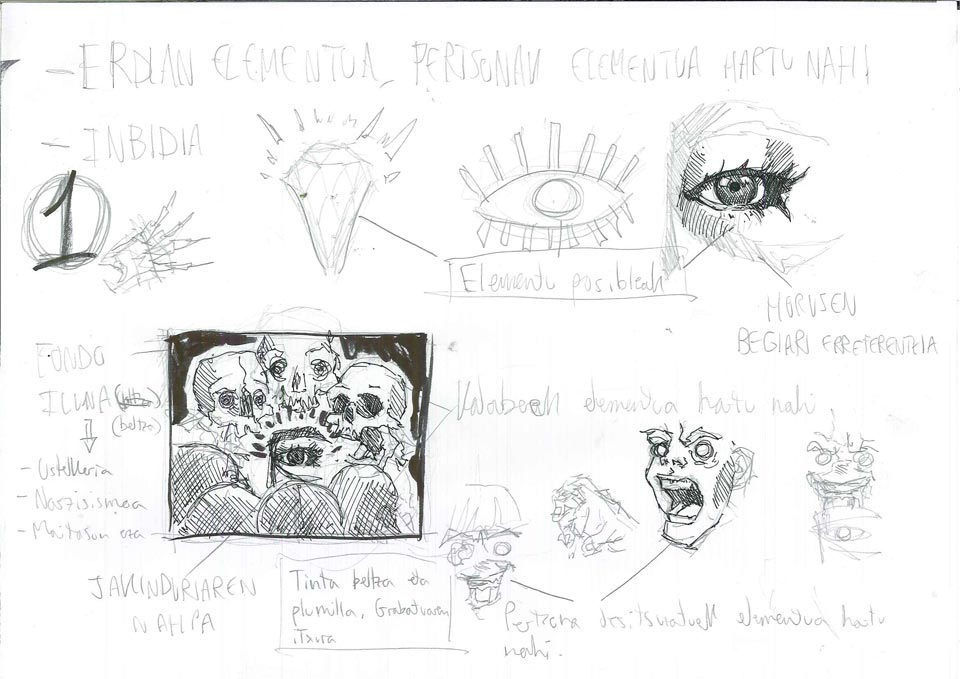 - ERDIAN ELEMENTUA, PERTSONAK ELEMENTUA HARTU NAHI
- INBIDIA
1
Elementu posibleak
HORUSEN
BEGIARI ERREFERENTZIA
FONDO
ILUNA
(beltza)
- Ustelkeria
- Narzisismoa
- Maitasun eza
JAKINDURIAREN
NAHIA
Kalaberek elementua hartu nahi
Tinta beltza eta
plumilla, Grabatuaren
itxura
Pertzona desitxuratuek elementua hartu
nahi.